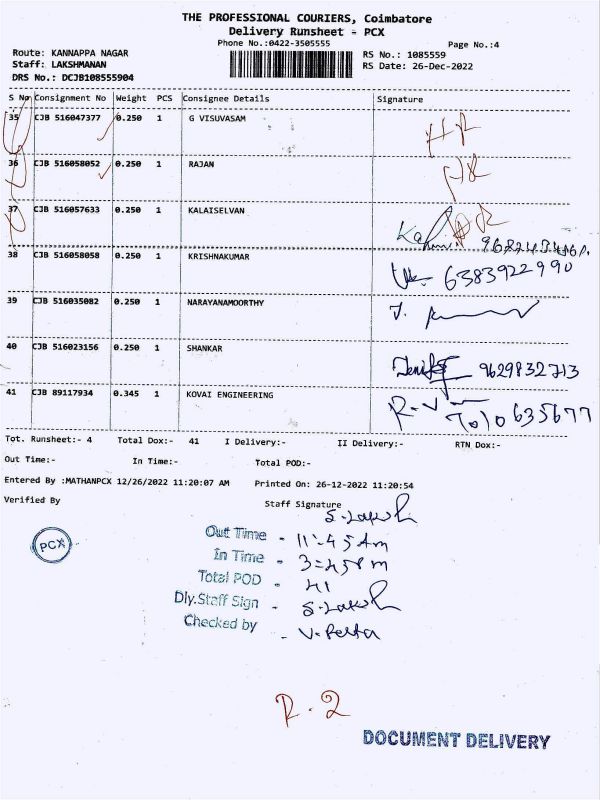 THE PROFESSIONAL COURIERS, Coimbatore
Delivery Runsheet - PCX
Phone No.:0422-3505555
Page No.:4
Route: KANNAPPA NAGAR
RS No.: 1085559
Staff: LAKSHMANAN
RS Date: 26-Dec-2022
DRS No.: DCJB108555904
S No Consignment No Weight PCS Consignee Details Signature
35 CJB 516047377 0.250 1 G VISUVASAM
36 CJB 516058052 0.250 1 RAJAN
37 CJB 516057633 0.250 1 KALAISELVAN
38 CJB 516058058 0.250 1 KRISHNAKUMAR
6383922990
39 CJB 516035082 0.250 1 NARAYANAMOORTHY
40 CJB 516023156 0.250 1 SHANKAR
9629832713
41 CJB 89117934 0.345 1 KOVAI ENGINEERING
R.V
Tot. Runsheet:- 4 Total Dox:- 41 I Delivery:- II Delivery:- RTN Dox:-
Out Time:- In Time:- Total POD:-
Entered By :MATHANPCX 12/26/2022 11:20:07 AM Printed On: 26-12-2022 11:20:54
Verified By Staff Signature
S. Laksh
PCX
Out Time - 11:45 Am
In Time - 3:45 Pm
Total POD - 41
Dly.Staff Sign - S. Laksh
Checked by - V.
R.2
DOCUMENT DELIVERY